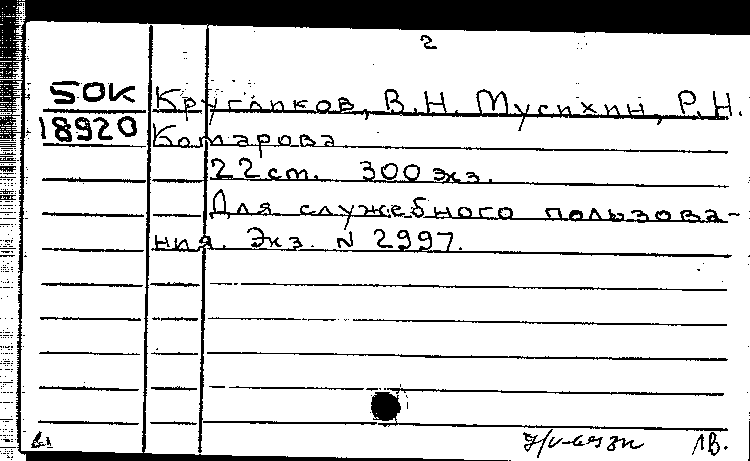 2
50К Кругликов, В.Н. Мусихин, Р.Н.
18920 Комарова
22 ст. 300 экз.
Для служебного пользова-
ния. Экз. N 2997.
1В.